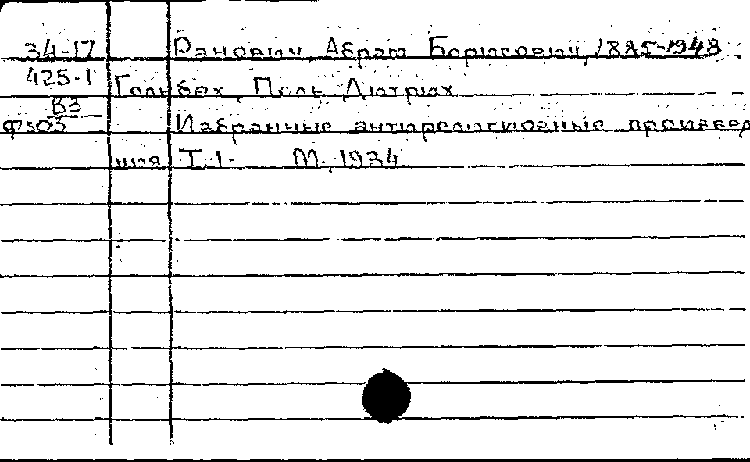 34-17 Ранович, Абрам Борисович, 1885-1948
425-1 Гольбах, Поль Дитрих
В3
Ф503 Избранные антирелигиозные произведе
ния Т.1. М., 1934